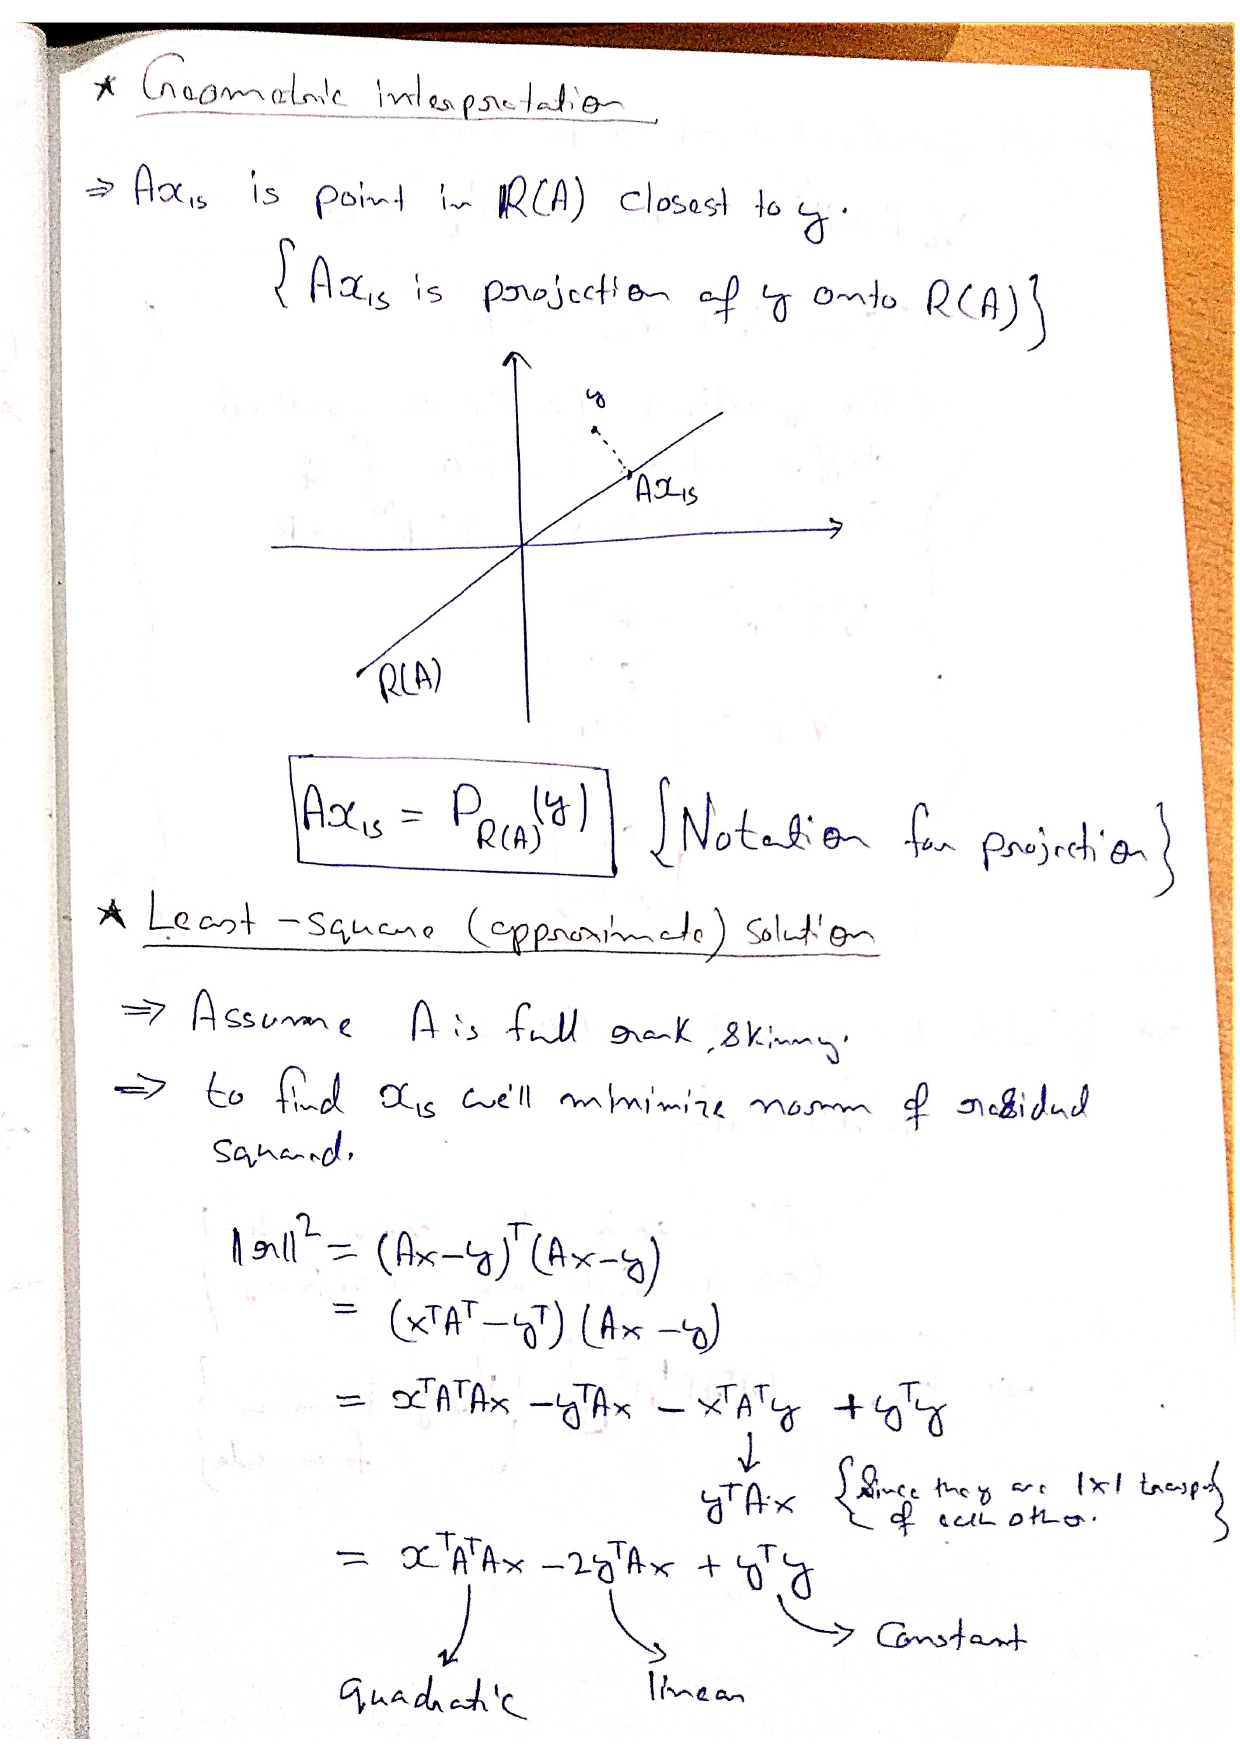 * Geometric interpretation
⇒ Axls is point in R(A) closest to y.
{Axls is projection of y onto R(A)}
y
Axls
R(A)
Axls = P_R(A)(y) {Notation for projection}
* Least-square (approximate) solution
⇒ Assume A is full rank, skinny.
⇒ to find xls we'll minimize norm of residual
squared.
||r||² = (Ax-y)ᵀ(Ax-y)
= (xᵀAᵀ-yᵀ)(Ax-y)
= xᵀAᵀAx - yᵀAx - xᵀAᵀy + yᵀy
↓
yᵀAx {Since they are 1x1 transpose
of each other.}
= xᵀAᵀAx - 2yᵀAx + yᵀy
→ Constant
quadratic linear